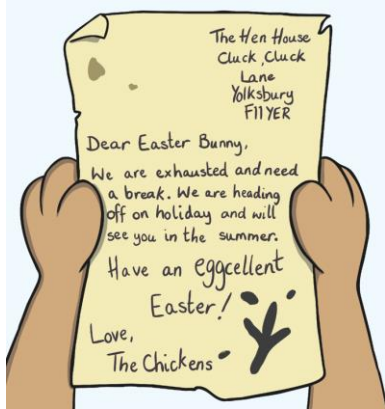 The Hen House
Cluck, Cluck
Lane
Yolksbury
F11 YER
Dear Easter Bunny,
We are exhausted and need
a break. We are heading
off on holiday and will
see you in the summer.
Have an eggcellent
Easter!
Love,
The Chickens